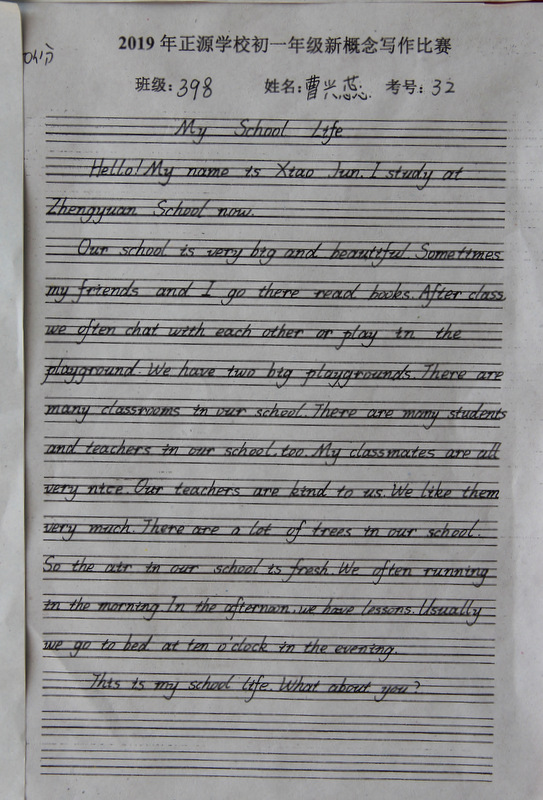 2019年正源学校初一年级新概念写作比赛
班级：398 姓名：曹兴蕊 考号：32
My School Life
Hello! My name is Xiao Jun. I study at
Zhengyuan School now.
Our school is very big and beautiful. Sometimes
my friends and I go there read books. After class
we often chat with each other or play in the
playground. We have two big playgrounds. There are
many classrooms in our school. There are many students
and teachers in our school, too. My classmates are all
very nice. Our teachers are kind to us. We like them
very much. There are a lot of trees in our school.
So the air in our school is fresh. We often running
in the morning. In the afternoon, we have lessons. Usually
we go to bed at ten o'clock in the evening.
This is my school life. What about you?